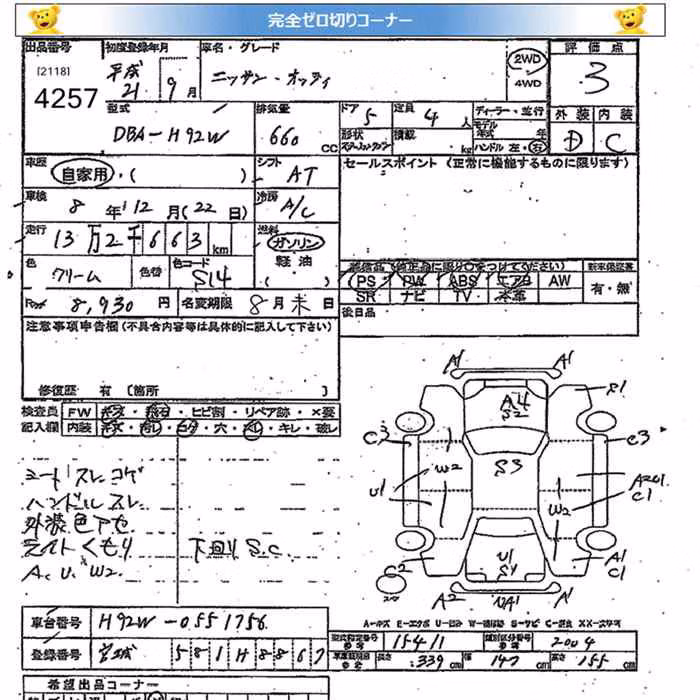 完全ゼロ切りコーナー
出品番号 初度登録年月 車名・グレード 評価点
[2118] 平成 21 9月 ニッサン・オッティ 2WD 3
4257 4WD
型式 排気量 ドア 定員 ディーラー・並行 外装 内装
DBA-H92W 660 CC 5 4人 モデル年式 年 D C
形状 積載 kg ハンドル 左・右
車歴 自家用・( ) シフト AT セールスポイント (正常に機能するものに限ります)
車検 8年12月(22日) 冷房 A/C
走行 13万2千663km 燃料 ガソリン
軽油
色 クリーム 色替 色コード S14 ( )
装備品(純正品に限り○をつけてください) 新車保証書
PS PW ABS エアB AW 有・無
SR ナビ TV 本革
8,930円 名変期限 8月末日 後日品
注意事項申告欄(不具合内容等は具体的に記入して下さい)
修復歴 有 [箇所 ]
検査員 FW キズ・飛石・ヒビ割・リペア跡・×要
記入欄 内装 キズ・汚レ・コゲ・穴・スレ・キレ・破レ
シートスレ コゲ
ハンドルスレ
外装色アセ
ライトくもり 下回りS.C.
A.U.W2.
A1 A1
A4
S2
S1
C3 C3
S3
W2
U1
A2U1
C1
W2
U1
S1
C2
A1
C1
A2 UA1 A1
A-キズ E-エクボ U-凹ミ W-補修跡 S-サビ C-腐食 XX-交換済
車台番号 H92W-0551756
登録番号 宮城 581 H8867
型式指定番号 15411 類別区分番号 2004
長さ 339 cm 幅 147 cm 高さ 155 cm
希望出品コーナー